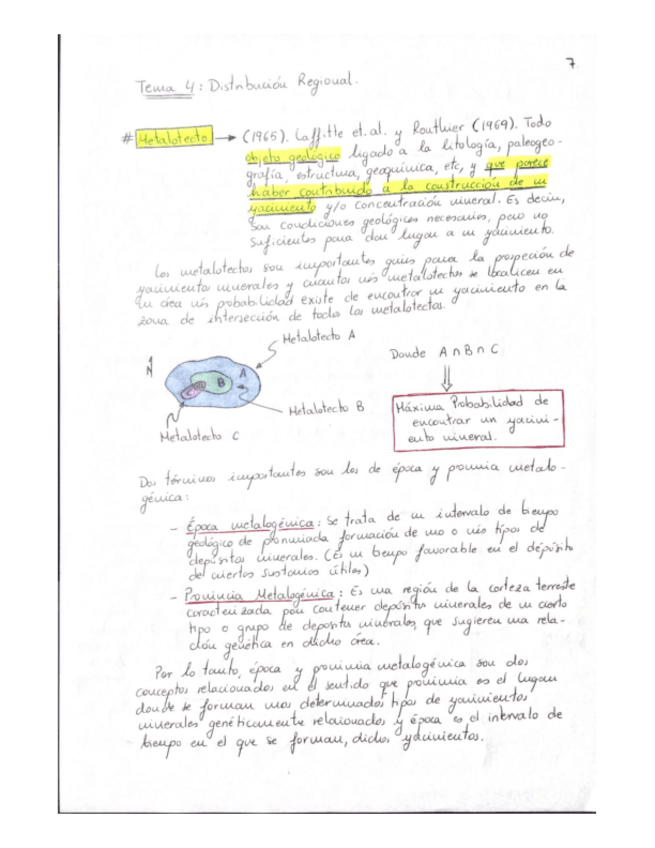 7
Tema 4: Distribución Regional.
# Metalotecto → (1965). Laffitte et. al. y Routhier (1969). Todo
objeto geológico ligado a la litología, paleogeo-
grafía, estructura, geoquímica, etc, y que parece
haber contribuido a la construcción de un
yacimiento y/o concentración mineral. Es decir,
son condiciones geológicas necesarias, pero no
suficientes para dar lugar a un yacimiento.
Los metalotectos son importantes guías para la prospección de
yacimientos minerales y cuantos más metalotectos se localicen en
un área más probabilidad existe de encontrar un yacimiento en la
zona de intersección de todos los metalotectos.
Metalotecto A
N
A
B
Metalotecto B
Metalotecto C
Donde A ∩ B ∩ C
Máxima Probabilidad de
encontrar un yacimi-
ento mineral.
Dos términos importantes son los de época y provincia metalo-
génica:
- Época metalogénica: Se trata de un intervalo de tiempo
geológico de pronunciada formación de uno o más tipos de
depósitos minerales. (Es un tiempo favorable en el depósito
de ciertas sustancias útiles)
- Provincia Metalogénica: Es una región de la corteza terrestre
caracterizada por contener depósitos minerales de un cierto
tipo o grupo de depósitos minerales, que sugieren una rela-
ción genética en dicho área.
Por lo tanto, época y provincia metalogénica son dos
conceptos relacionados en el sentido que provincia es el lugar
donde se forman unos determinados tipos de yacimientos
minerales genéticamente relacionados y época es el intervalo de
tiempo en el que se forman, dichos yacimientos.